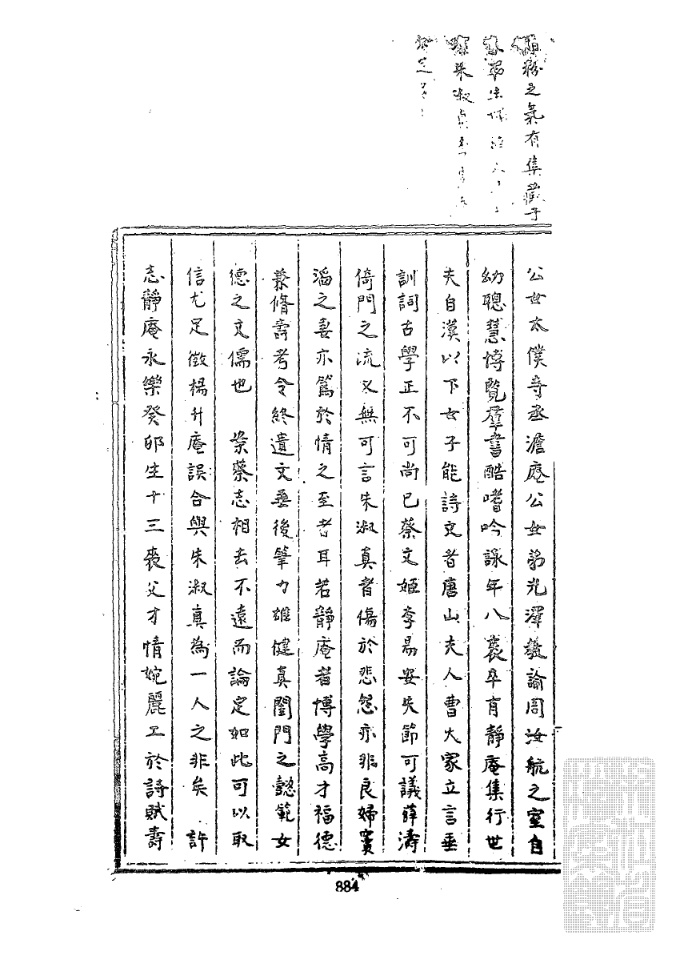 粉之氣有集藏于
朱淑真
公女太僕寺丞澹庵公女弟光澤教諭周汝航之室自
幼聰慧博覽群書酷嗜吟詠年八袠卒有靜庵集行世
夫自漢以下女子能詩文者唐山夫人曹大家立言垂
訓詞古學正不可尚已蔡文姬李易安失節可議薛濤
倚門之流又無可言朱淑真者傷於悲怨亦非良婦竇
滔之妻亦篤於情之至者耳若靜庵者博學高才福德
兼脩壽考令終遺文垂後筆力雄健真閨門之懿範女
德之文儒也　榮蔡志相去不遠而論定如此可以取
信尤足徵楊升庵誤合與朱淑真為一人之非矣　許
志靜庵永樂癸卯生十三喪父才情婉麗工於詩賦壽
884